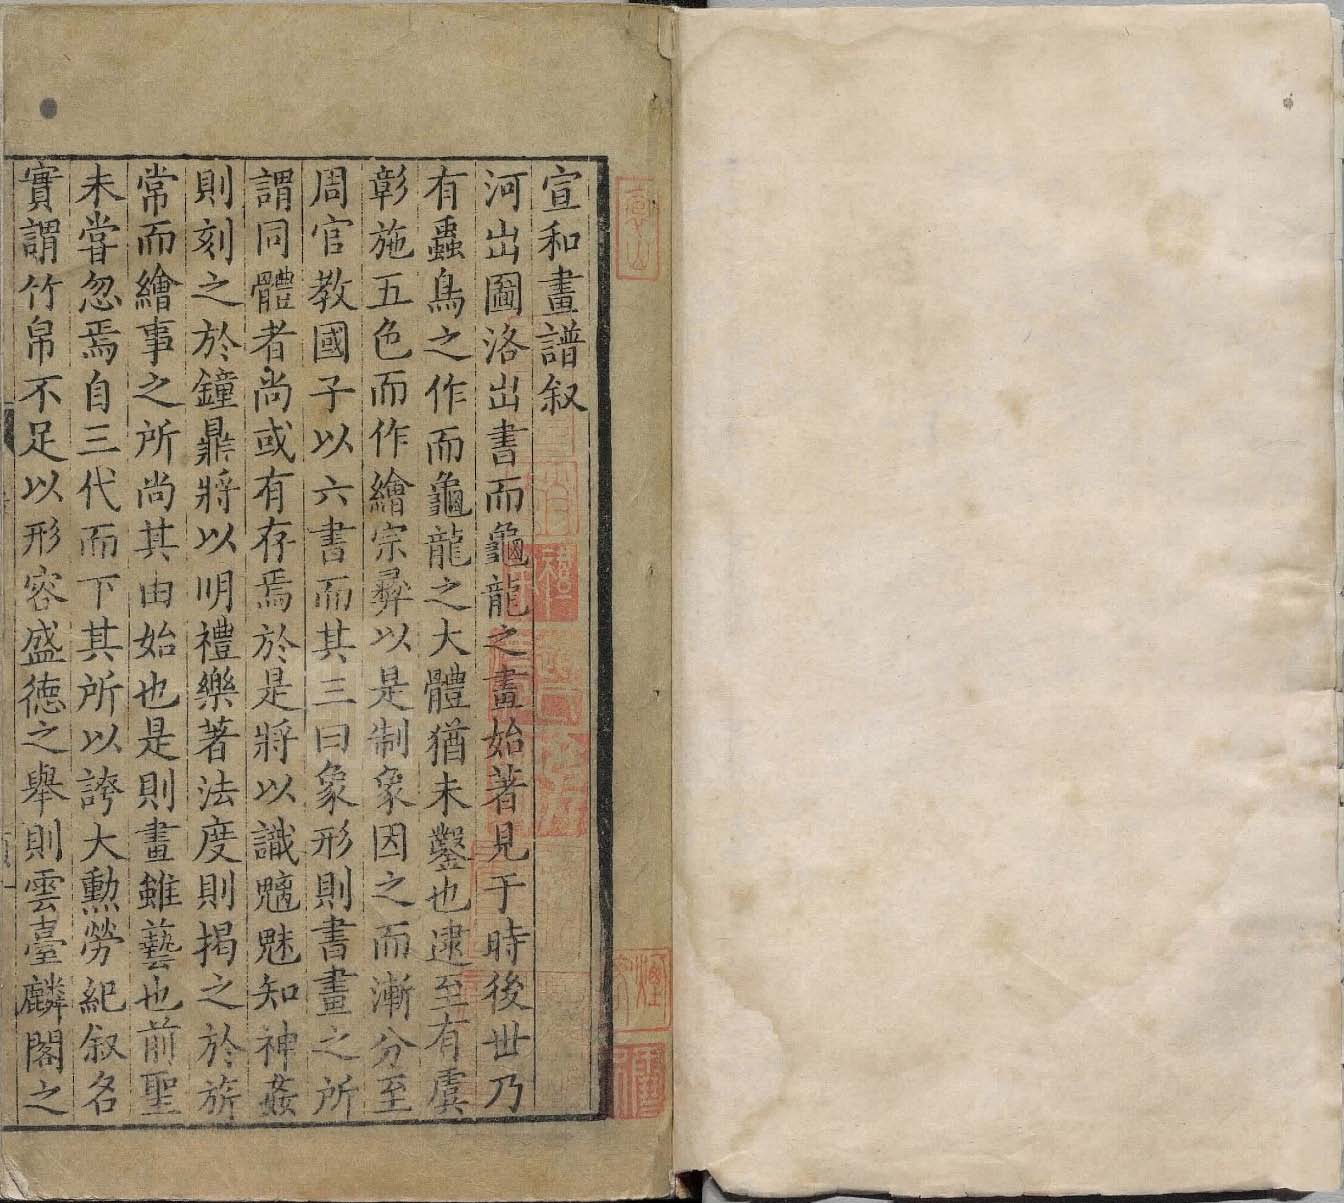 宣和畫譜叙
河出圖洛出書而龜龍之畫始著見于時後世乃
有蟲鳥之作而龜龍之大體猶未鑿也逮至有虞
彰施五色而作繪宗彝以是制象因之而漸分至
周官教國子以六書而其三曰象形則書畫之所
謂同體者尚或有存焉於是將以識魑魅知神姦
則刻之於鐘鼎將以明禮樂著法度則揭之於旂
常而繪事之所尚其由始也是則畫雖藝也前聖
未嘗忽焉自三代而下其所以誇大勳勞紀叙名
實謂竹帛不足以形容盛德之舉則雲臺麟閣之